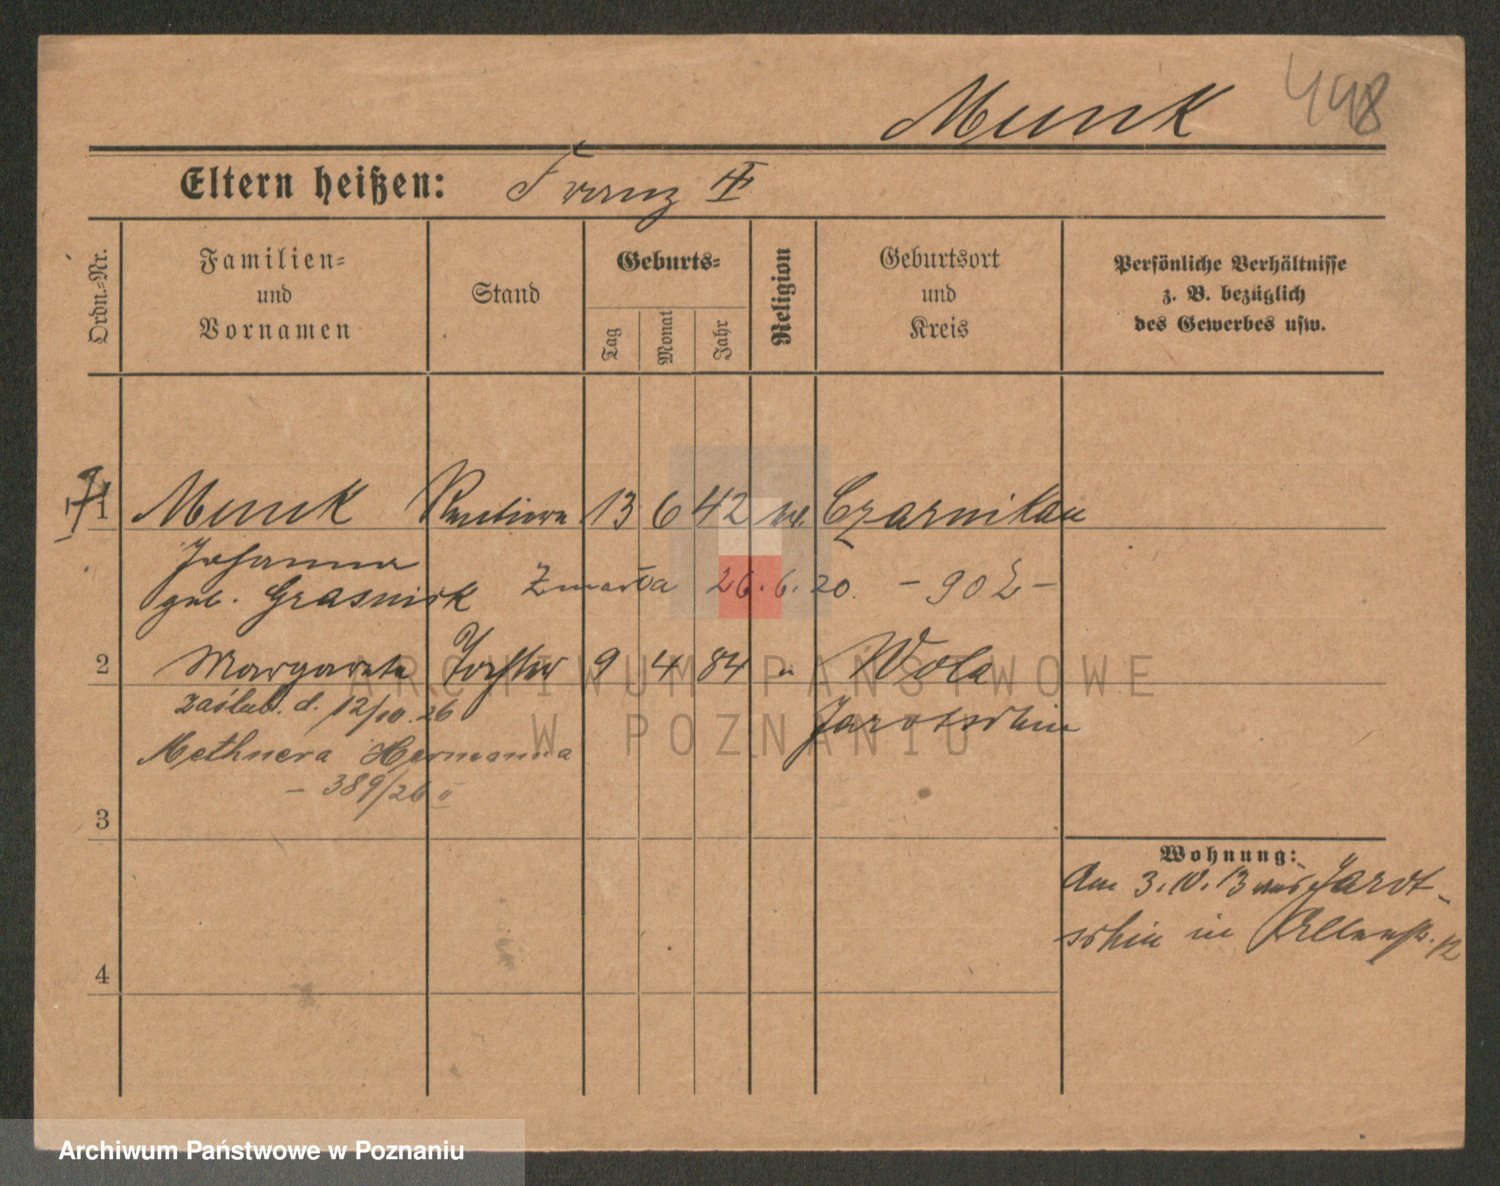 Munk
448
Eltern heißen: Franz
Ordn.-Nr.
Familien-
und
Vornamen
Stand
Geburts-
Tag
Monat
Jahr
Religion
Geburtsort
und
Kreis
Persönliche Verhältnisse
z. B. bezüglich
des Gewerbes usw.
1 Munk Rentiere 13 6 42 Czarnikau
Johanna
geb. Zmarła 26.6.20. - 90 -
2 Margarete Tochter 9 4 84 Wola
zaślub. d. 12/10.26 Jarotschin
Methnera Hermanna
- 389/26 II
3
Wohnung:
Am 3.10.13 aus Jarot-
schin in
4
ARCHIWUM PAŃSTWOWE
W POZNANIU
Archiwum Państwowe w Poznaniu